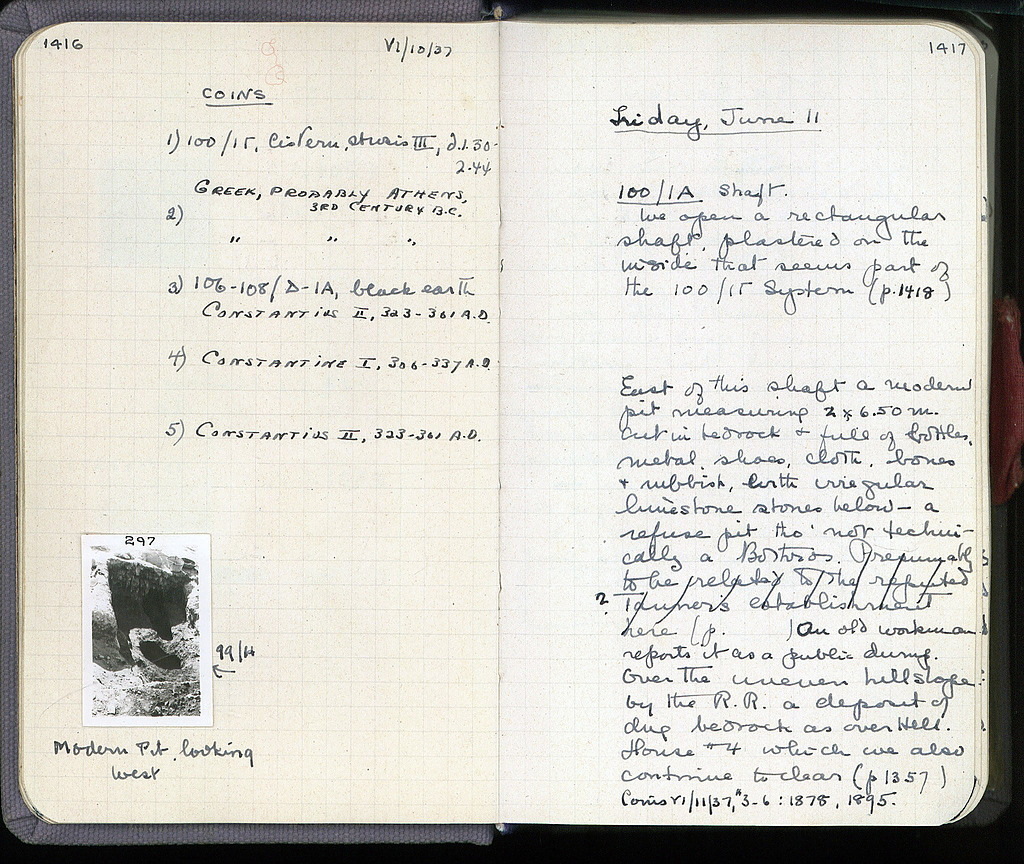 1416
VI/10/37
COINS
1) 100/IΓ, Cistern, stasis III, d.1.30-
2.44
GREEK, PROBABLY ATHENS,
3RD CENTURY B.C.
2)
" " "
3) 106-108/Δ-IA, black earth
CONSTANTIUS II, 323-361 A.D.
4) CONSTANTINE I, 306-337 A.D.
5) CONSTANTIUS II, 323-361 A.D.
297
99/H
←
Modern Pit, looking
west
1417
Friday, June 11
100/IA Shaft.
We open a rectangular
shaft, plastered on the
inside that seems part of
the 100/IΓ System (p.1418)
East of this shaft a modern
pit measuring 2 x 6.50 m.
cut in bedrock & full of bottles,
metal, shoes, cloth, bones
& rubbish, with irregular
limestone stones below – a
refuse pit tho' not techni-
cally a Bothros. Presumably
to be related to the reputed
? Tanner's establishment
here (p. ) An old workman
reports it as a public dump.
Over the uneven hillslope
by the R.R. a deposit of
dug bedrock as over Hell.
House #4 which we also
continue to clear (p 1357)
Coins VI/11/37, #3-6: 1878, 1895.